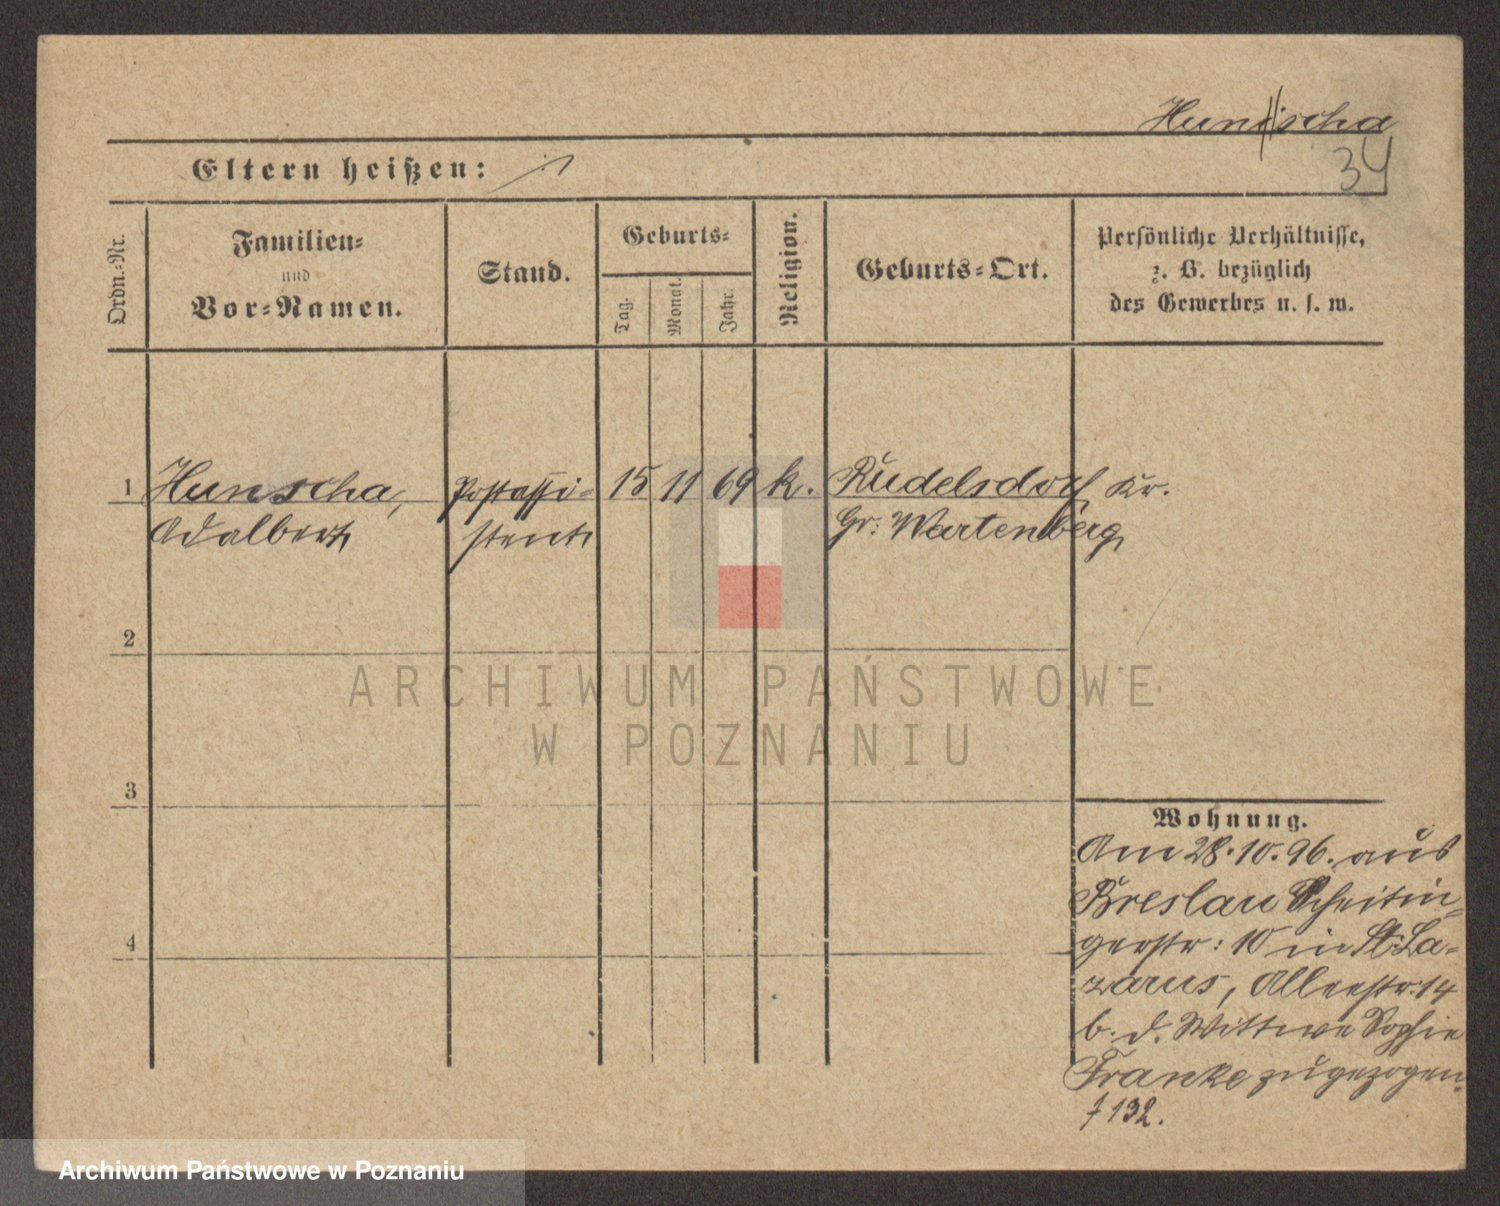 Hunscha
34
Eltern heißen:
Ordn.-Nr.
Familien-
und
Vor-Namen.
Stand.
Geburts-
Tag.
Monat.
Jahr.
Religion.
Geburts-Ort.
Persönliche Verhältnisse,
z. B. bezüglich
des Gewerbes u. s. w.
1 Hunscha, Postassi- 15 11 69 k. Rudelsdorf Kr.
Adalbert stent Gr: Wartenberg
2
3
4
Wohnung.
Am 28.10.96. aus
Breslau
gerstr: 10 in St. La-
zarus, Alleestr. 14
b. d. Wittwe Sophie
Franke zugezogen.
132.
ARCHIWUM PAŃSTWOWE
W POZNANIU
Archiwum Państwowe w Poznaniu